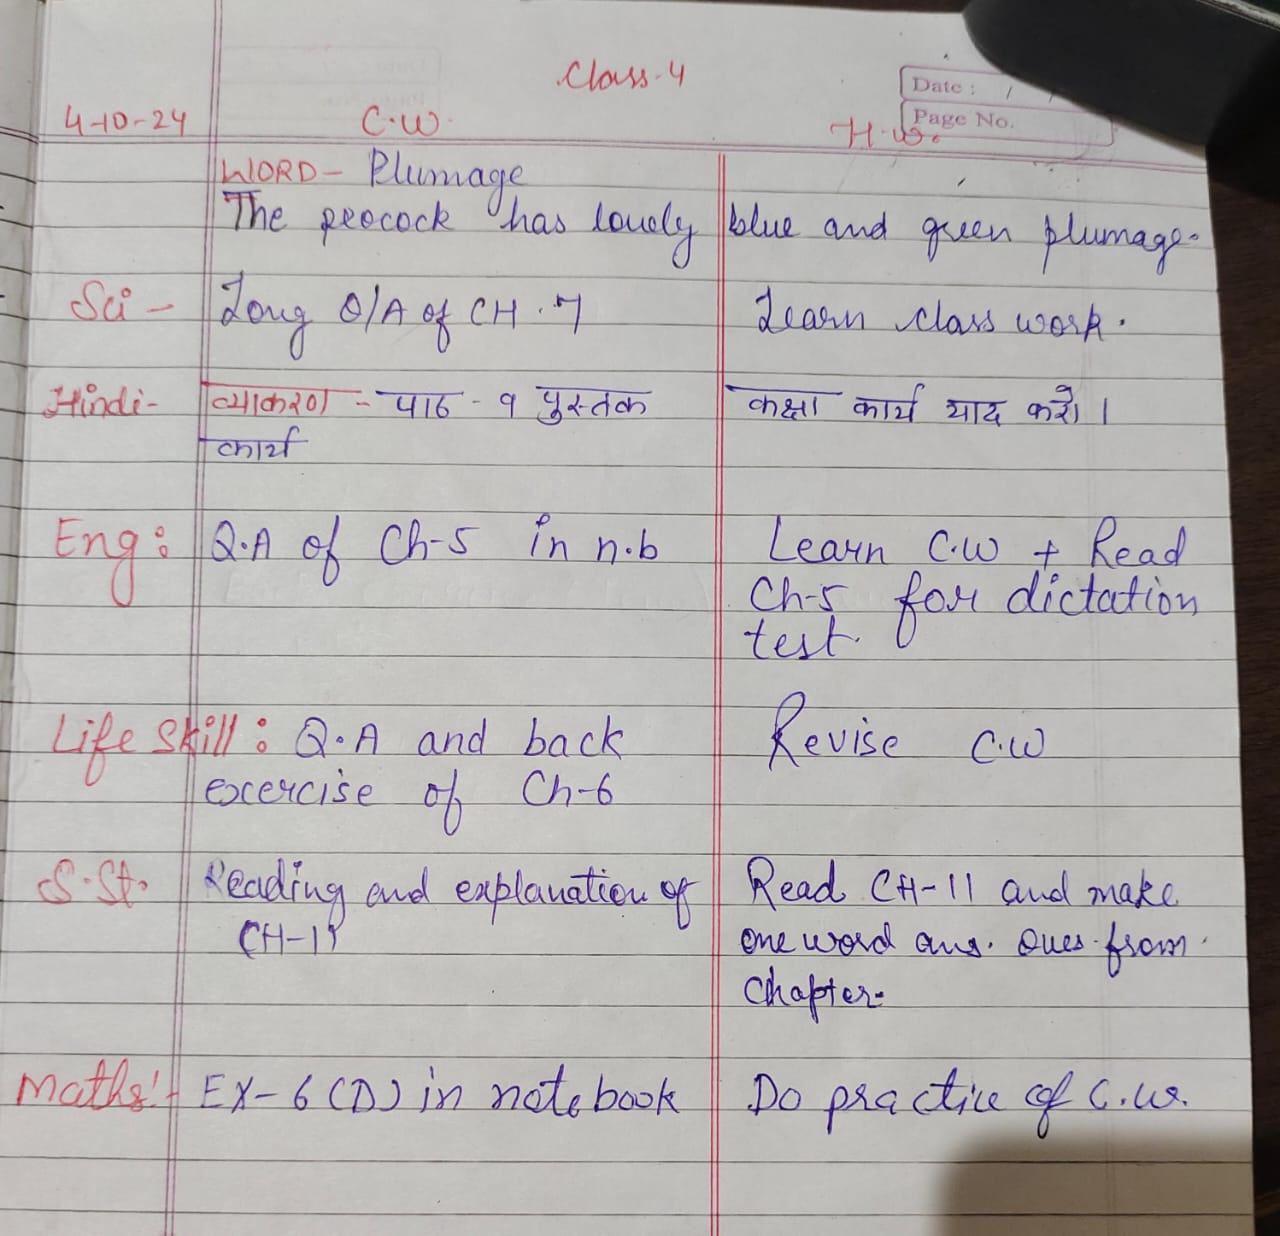 Class-4
Date : / /
Page No.
4-10-24 C.W. H.W.
WORD- Plumage
The peocock has lovely blue and green plumage.
Sci - Long Q/A of CH.7 Learn class work.
Hindi- व्याकरण - पाठ - १ पुस्तक कक्षा कार्य याद करो।
कार्य
Eng: Q.A of Ch-5 in n.b Learn C.W + Read
Ch-5 for dictation
test.
Life Skill: Q.A and back Revise C.W
excercise of Ch-6
S.St. Reading and explanation of Read CH-11 and make
CH-11 one word ans. Ques. from
Chapter.
Maths:- EX-6 (D) in notebook Do practice of C.W.